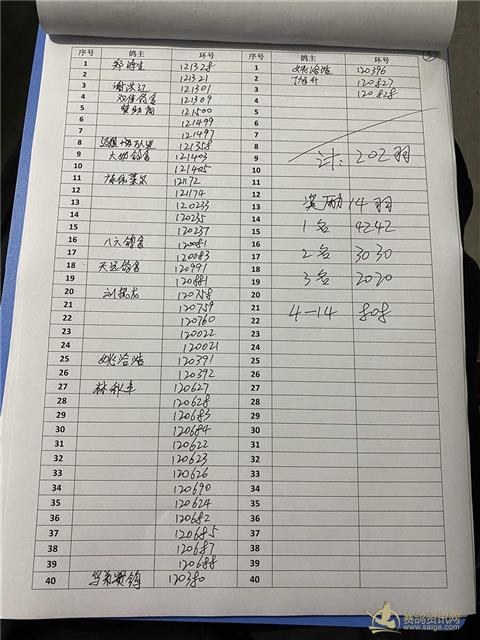 序号 鸽主 环号 序号 鸽主 环号
1 121328 1 姚洽浩 120396
2 121321 2 120827
3 谢洪江 121301 3 120828
4 双佳鸽舍 121309 4
5 赞助商 121500 5
6 121499 6
7 121497 7
8 121358 8
9 鸽舍 121403 9 计: 202羽
10 121405 10
11 121172 11
12 121174 12
13 120233 13 奖励14羽
14 120235 14
15 120237 15 1名 4242
16 八六鸽舍 120081 16
17 120083 17 2名 3030
18 天远鸽舍 120991 18
19 120881 19 3名 2020
20 刘振龙 120758 20
21 120759 21 4-14 808
22 120760 22
23 120022 23
24 120021 24
25 姚洽浩 120391 25
26 120392 26
27 林秋丰 120627 27
28 120628 28
29 120683 29
30 120684 30
31 120622 31
32 120623 32
33 120626 33
34 120690 34
35 120624 35
36 120682 36
37 120685 37
38 120687 38
39 120688 39
40 120380 40
赛鸽资讯网
www.saige.com